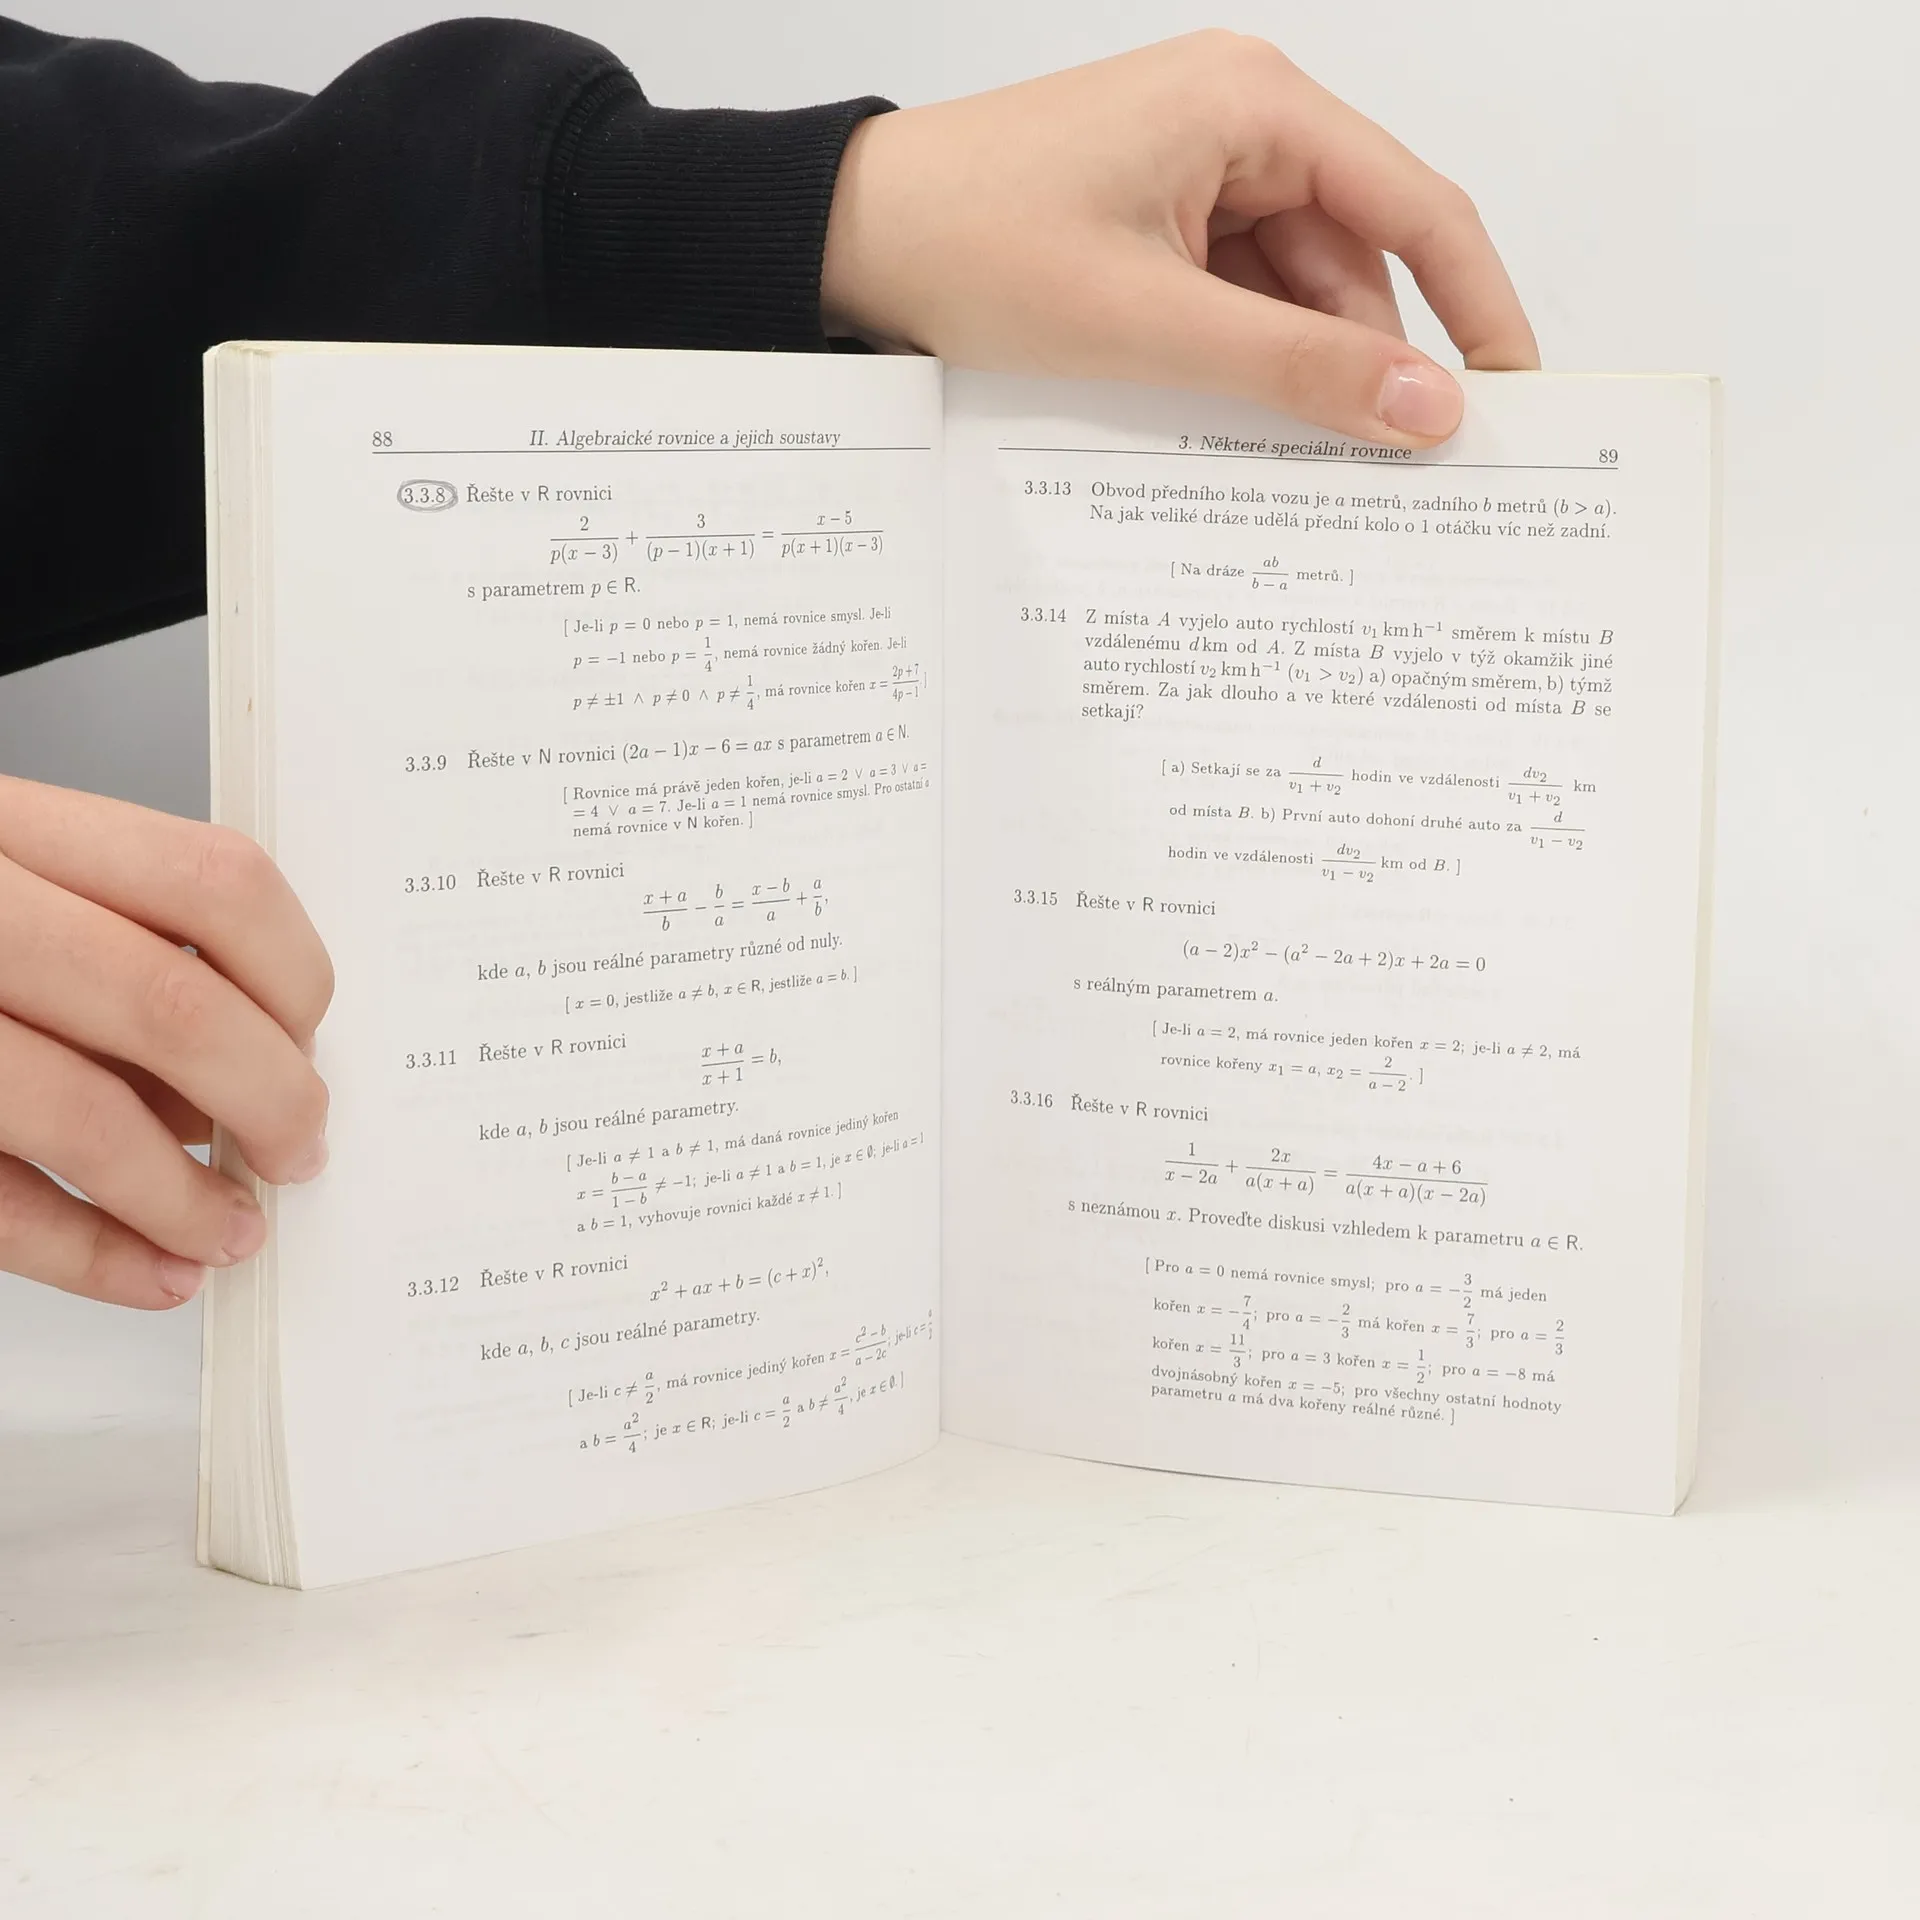 88 II. Algebraické rovnice a jejich soustavy
3.3.8 Řešte v R rovnici
2/(p(x − 3)) + 3/((p − 1)(x + 1)) = (x − 5)/(p(x + 1)(x − 3))
s parametrem p ∈ R.
[ Je-li p = 0 nebo p = 1, nemá rovnice smysl. Je-li
p = −1 nebo p = 1/4, nemá rovnice žádný kořen. Je-li
p ≠ ±1 ∧ p ≠ 0 ∧ p ≠ 1/4, má rovnice kořen x = (2p+7)/(4p−1). ]
3.3.9 Řešte v N rovnici (2a − 1)x − 6 = ax s parametrem a ∈ N.
[ Rovnice má právě jeden kořen, je-li a = 2 ∨ a = 3 ∨ a =
= 4 ∨ a = 7. Je-li a = 1 nemá rovnice smysl. Pro ostatní a
nemá rovnice v N kořen. ]
3.3.10 Řešte v R rovnici
(x + a)/b − b/a = (x − b)/a + a/b,
kde a, b jsou reálné parametry různé od nuly.
[ x = 0, jestliže a ≠ b, x ∈ R, jestliže a = b. ]
3.3.11 Řešte v R rovnici
(x + a)/(x + 1) = b,
kde a, b jsou reálné parametry.
[ Je-li a ≠ 1 a b ≠ 1, má daná rovnice jediný kořen
x = (b − a)/(1 − b) ≠ −1; je-li a ≠ 1 a b = 1, je x ∈ ∅; je-li a = 1
a b = 1, vyhovuje rovnici každé x ≠ 1. ]
3.3.12 Řešte v R rovnici
x² + ax + b = (c + x)²,
kde a, b, c jsou reálné parametry.
[ Je-li c ≠ a/2, má rovnice jediný kořen x = (c² − b)/(a − 2c); je-li c = a/2
a b = a²/4; je x ∈ R; je-li c = a/2 a b ≠ a²/4, je x ∈ ∅. ]
3. Některé speciální rovnice 89
3.3.13 Obvod předního kola vozu je a metrů, zadního b metrů (b > a).
Na jak veliké dráze udělá přední kolo o 1 otáčku víc než zadní.
[ Na dráze ab/(b − a) metrů. ]
3.3.14 Z místa A vyjelo auto rychlostí v₁ km h⁻¹ směrem k místu B
vzdálenému d km od A. Z místa B vyjelo v týž okamžik jiné
auto rychlostí v₂ km h⁻¹ (v₁ > v₂) a) opačným směrem, b) týmž
směrem. Za jak dlouho a ve které vzdálenosti od místa B se
setkají?
[ a) Setkají se za d/(v₁ + v₂) hodin ve vzdálenosti dv₂/(v₁ + v₂) km
od místa B. b) První auto dohoní druhé auto za d/(v₁ − v₂)
hodin ve vzdálenosti dv₂/(v₁ − v₂) km od B. ]
3.3.15 Řešte v R rovnici
(a − 2)x² − (a² − 2a + 2)x + 2a = 0
s reálným parametrem a.
[ Je-li a = 2, má rovnice jeden kořen x = 2; je-li a ≠ 2, má
rovnice kořeny x₁ = a, x₂ = 2/(a − 2). ]
3.3.16 Řešte v R rovnici
1/(x − 2a) + 2x/(a(x + a)) = (4x − a + 6)/(a(x + a)(x − 2a))
s neznámou x. Proveďte diskusi vzhledem k parametru a ∈ R.
[ Pro a = 0 nemá rovnice smysl; pro a = −3/2 má jeden
kořen x = −7/4; pro a = −2/3 má kořen x = 7/3; pro a = 2/3
kořen x = 11/3; pro a = 3 kořen x = 1/2; pro a = −8 má
dvojnásobný kořen x = −5; pro všechny ostatní hodnoty
parametru a má dva kořeny reálné různé. ]